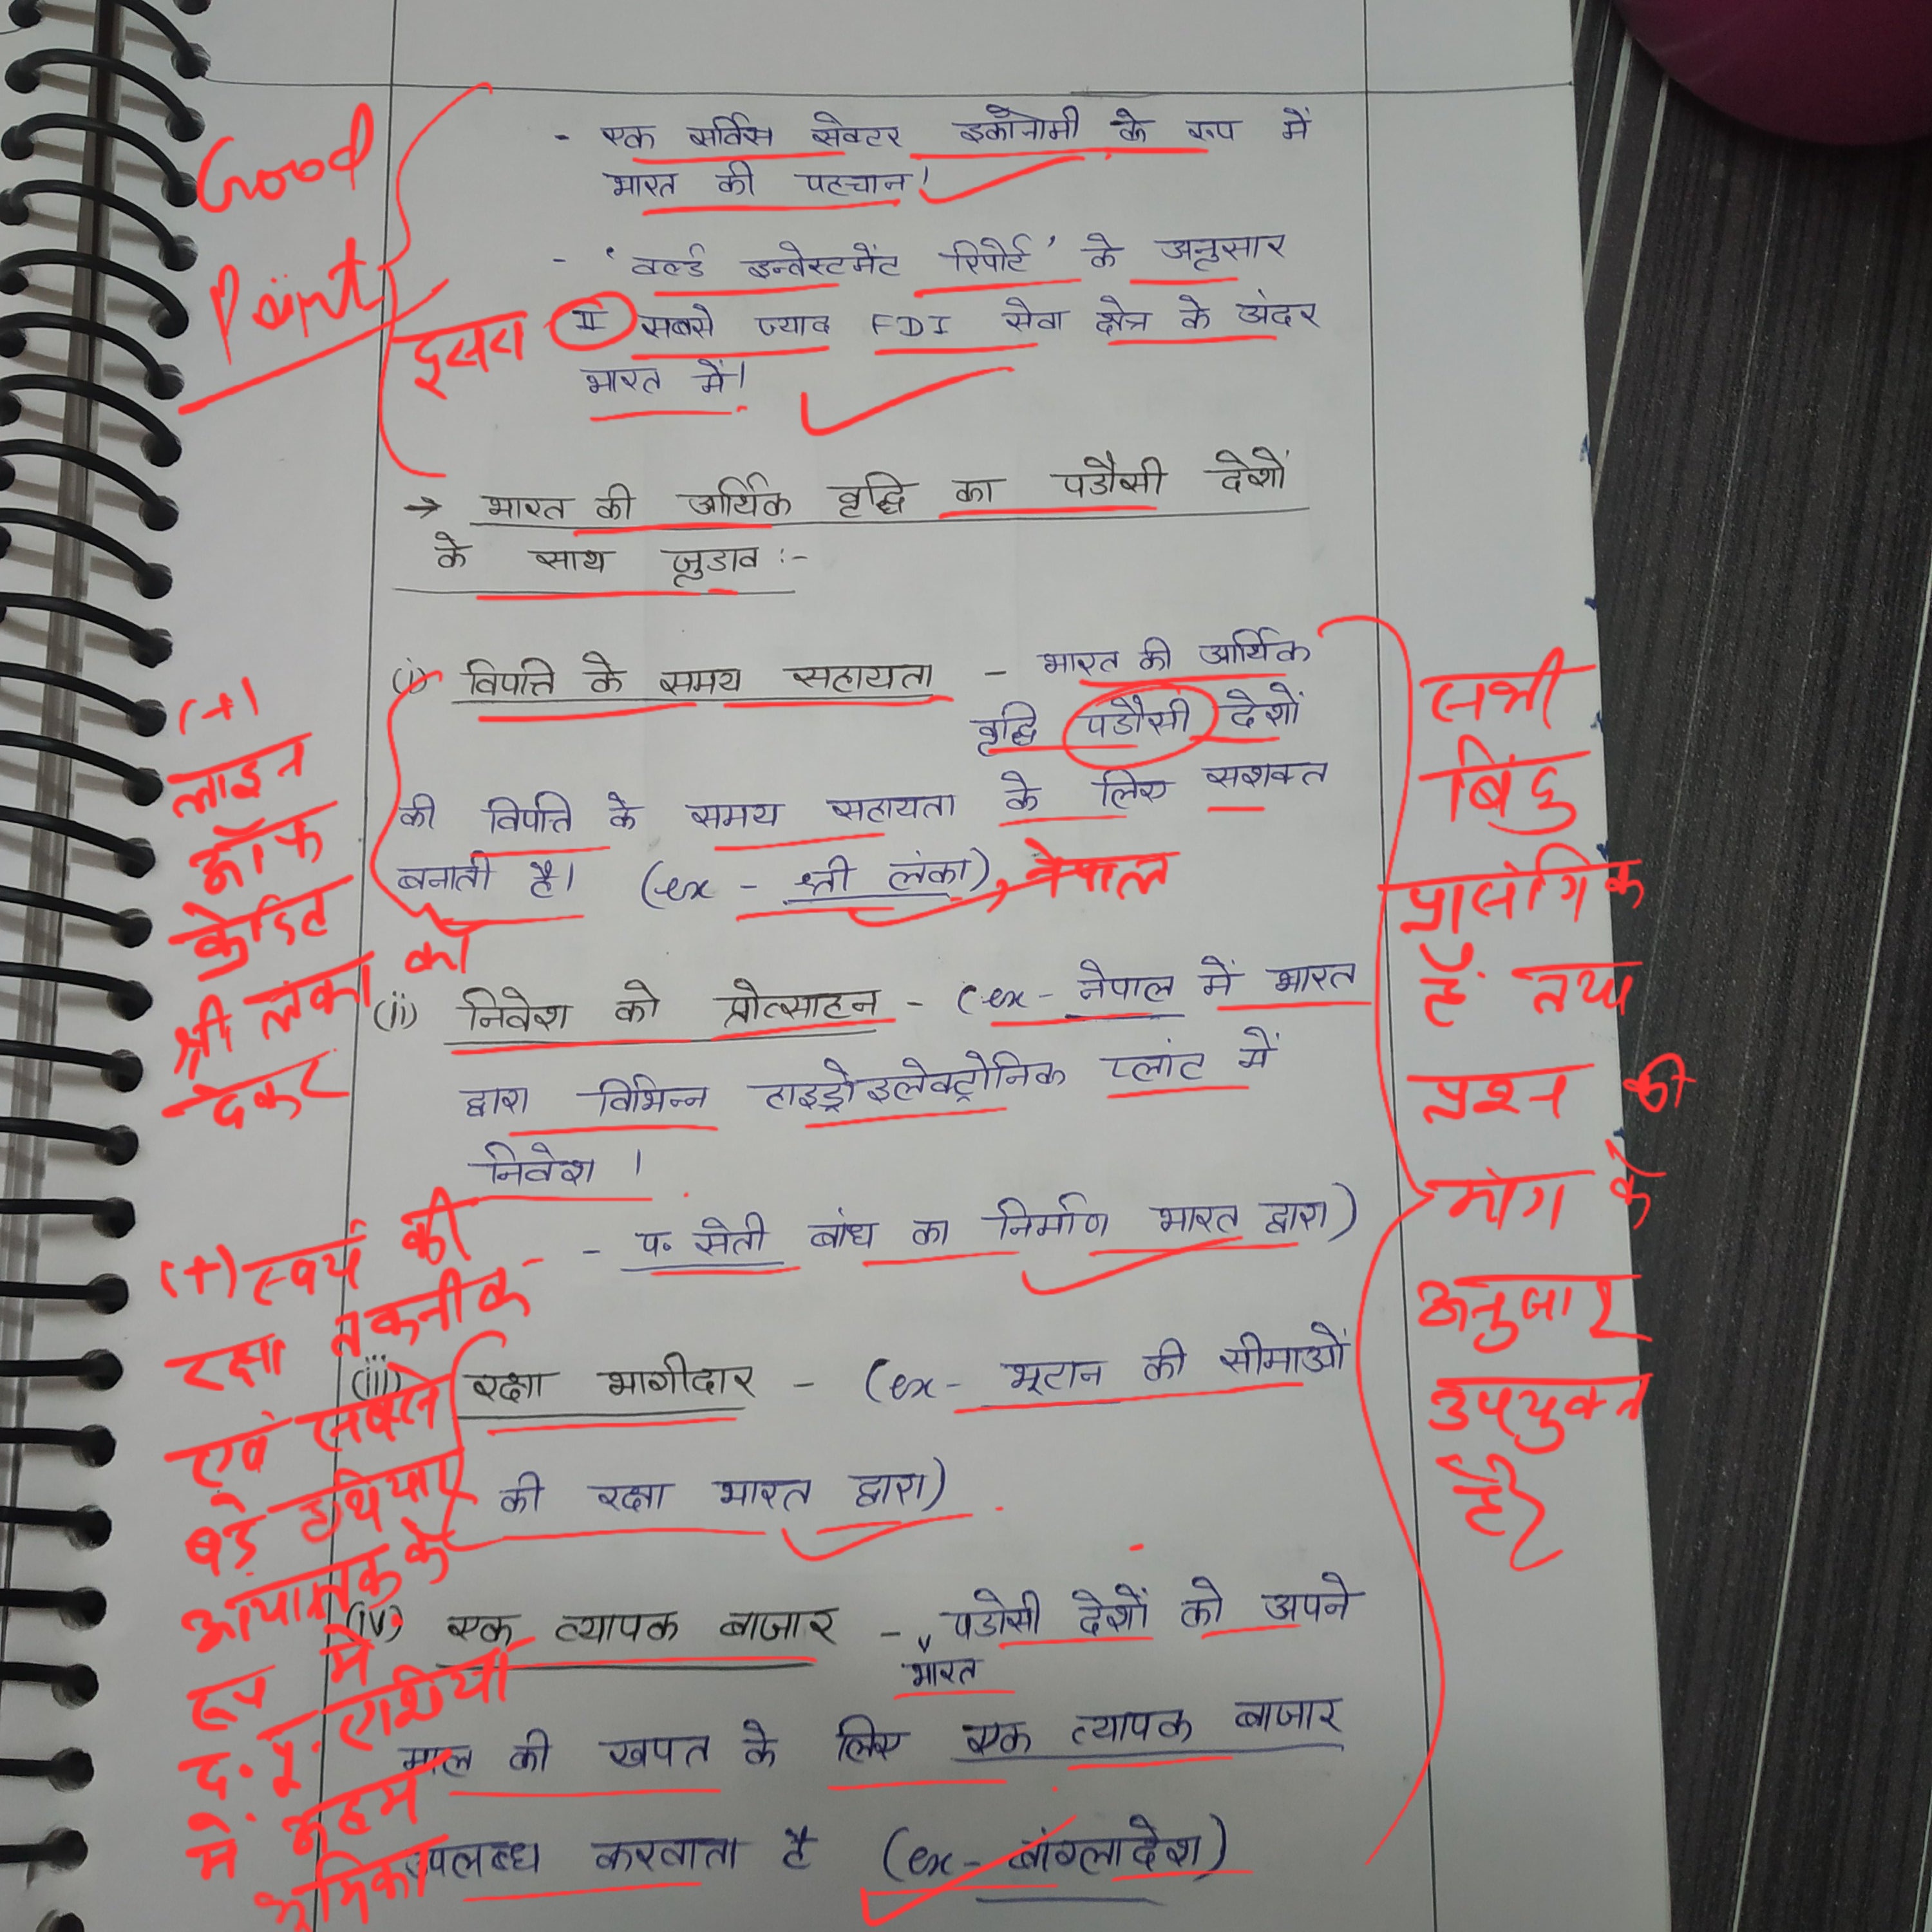 - एक सर्विस सेक्टर इकोनोमी के रूप में
भारत की पहचान।
- 'वर्ल्ड इन्वेस्टमेंट रिपोर्ट' के अनुसार
II सबसे ज्याद FDI सेवा क्षेत्र के अंदर
भारत में।
Good
Point
दूसरा
→ भारत की आर्थिक वृद्धि का पडौसी देशों
के साथ जुडाव :-
(i) विपत्ति के समय सहायता - भारत की आर्थिक
वृद्धि पडौसी देशों
की विपत्ति के समय सहायता के लिए सशक्त
बनाती है। (ex - श्री लंका), नेपाल
(+)
लाइन
ऑफ
क्रेडिट
श्री लंका को
देकर
(ii) निवेश को प्रोत्साहन - (ex - नेपाल में भारत
द्वारा विभिन्न हाइड्रोइलेक्ट्रोनिक प्लांट में
निवेश ।
- प. सेती बांध का निर्माण भारत द्वारा)
(iii) रक्षा भागीदार - (ex - भूटान की सीमाओं
की रक्षा भारत द्वारा)
(+) स्वयं की
रक्षा तकनीक
एवं सबसे
बड़े हथियार
आयातक के
रूप में
द. पू. एशिया
में अहम
भूमिका
(iv) एक व्यापक बाजार - पडोसी देशों को अपने
भारत
माल की खपत के लिए एक व्यापक बाजार
उपलब्ध करवाता है (ex - बांग्लादेश)
सभी
बिंदु
प्रासंगिक
हैं तथा
प्रश्न की
मांग के
अनुसार
उपयुक्त
है।